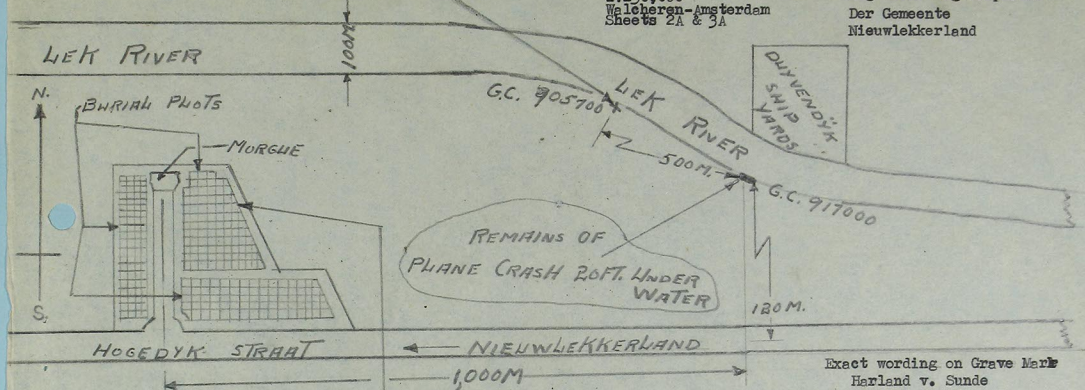 Walcheren-Amsterdam
Sheets 2A & 3A
Der Gemeente
Nieuwlekkerland
LEK RIVER
100M
G.C. 905700
LEK RIVER
DUYVENDYK
SHIP
YARDS
N.
BURIAL PLOTS
MORGUE
500M.
G.C. 917000
REMAINS OF
PLANE CRASH 20FT. UNDER
WATER
120M.
S.
HOGEDYK STRAAT
NIEUWLEKKERLAND
1,000M
Exact wording on Grave Mark
Harland v. Sunde